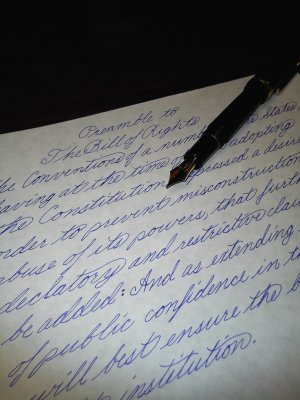 Preamble to
The Bill of Rights
The Conventions of a number States
having at the time of adopting
the Constitution, expressed a desire
order to prevent misconstruction
abuse of its powers, that furth
declatory and restrictive claus
be added: And as extending
of public confidence in th
will best ensure the b
institution.